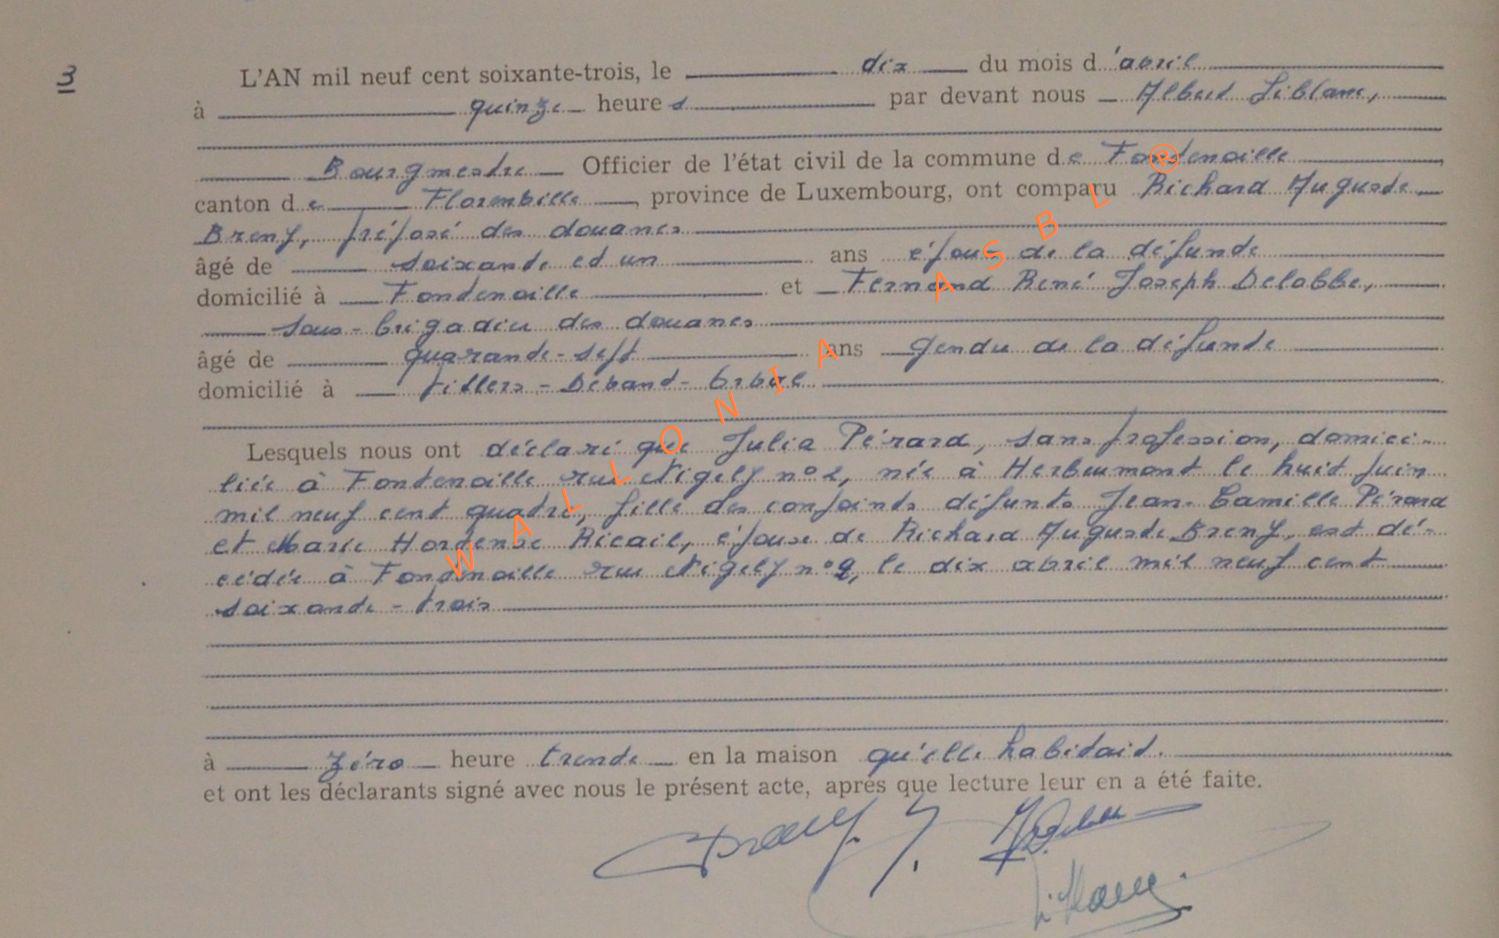 3
L'AN mil neuf cent soixante-trois, le dix du mois d'avril
à quinze heures par devant nous Albert Liblanc,
Bourgmestre Officier de l'état civil de la commune de Fontenoille
canton de Florenville, province de Luxembourg, ont comparu Richard Auguste
Breny, préposé des douanes
âgé de soixante et un ans époux de la défunte
domicilié à Fontenoille et Fernand René Joseph Delobbe,
sous-brigadier des douanes
âgé de quarante-sept ans gendre de la défunte
domicilié à Villers-Devant-Orval
Lesquels nous ont déclaré que Julia Pérard, sans profession, domici-
liée à Fontenoille rue Nigely n° 2, née à Herbeumont le huit juin
mil neuf cent quatre, fille des conjoints défunts Jean-Camille Pérard
et Marie Hortense Ricail, épouse de Richard Auguste Breny, est dé-
cédée à Fontenoille rue Nigely n° 2, le dix avril mil neuf cent
soixante-trois
à zéro heure trente en la maison qu'elle habitait.
et ont les déclarants signé avec nous le présent acte, après que lecture leur en a été faite.
WALLONIA ASBL ®